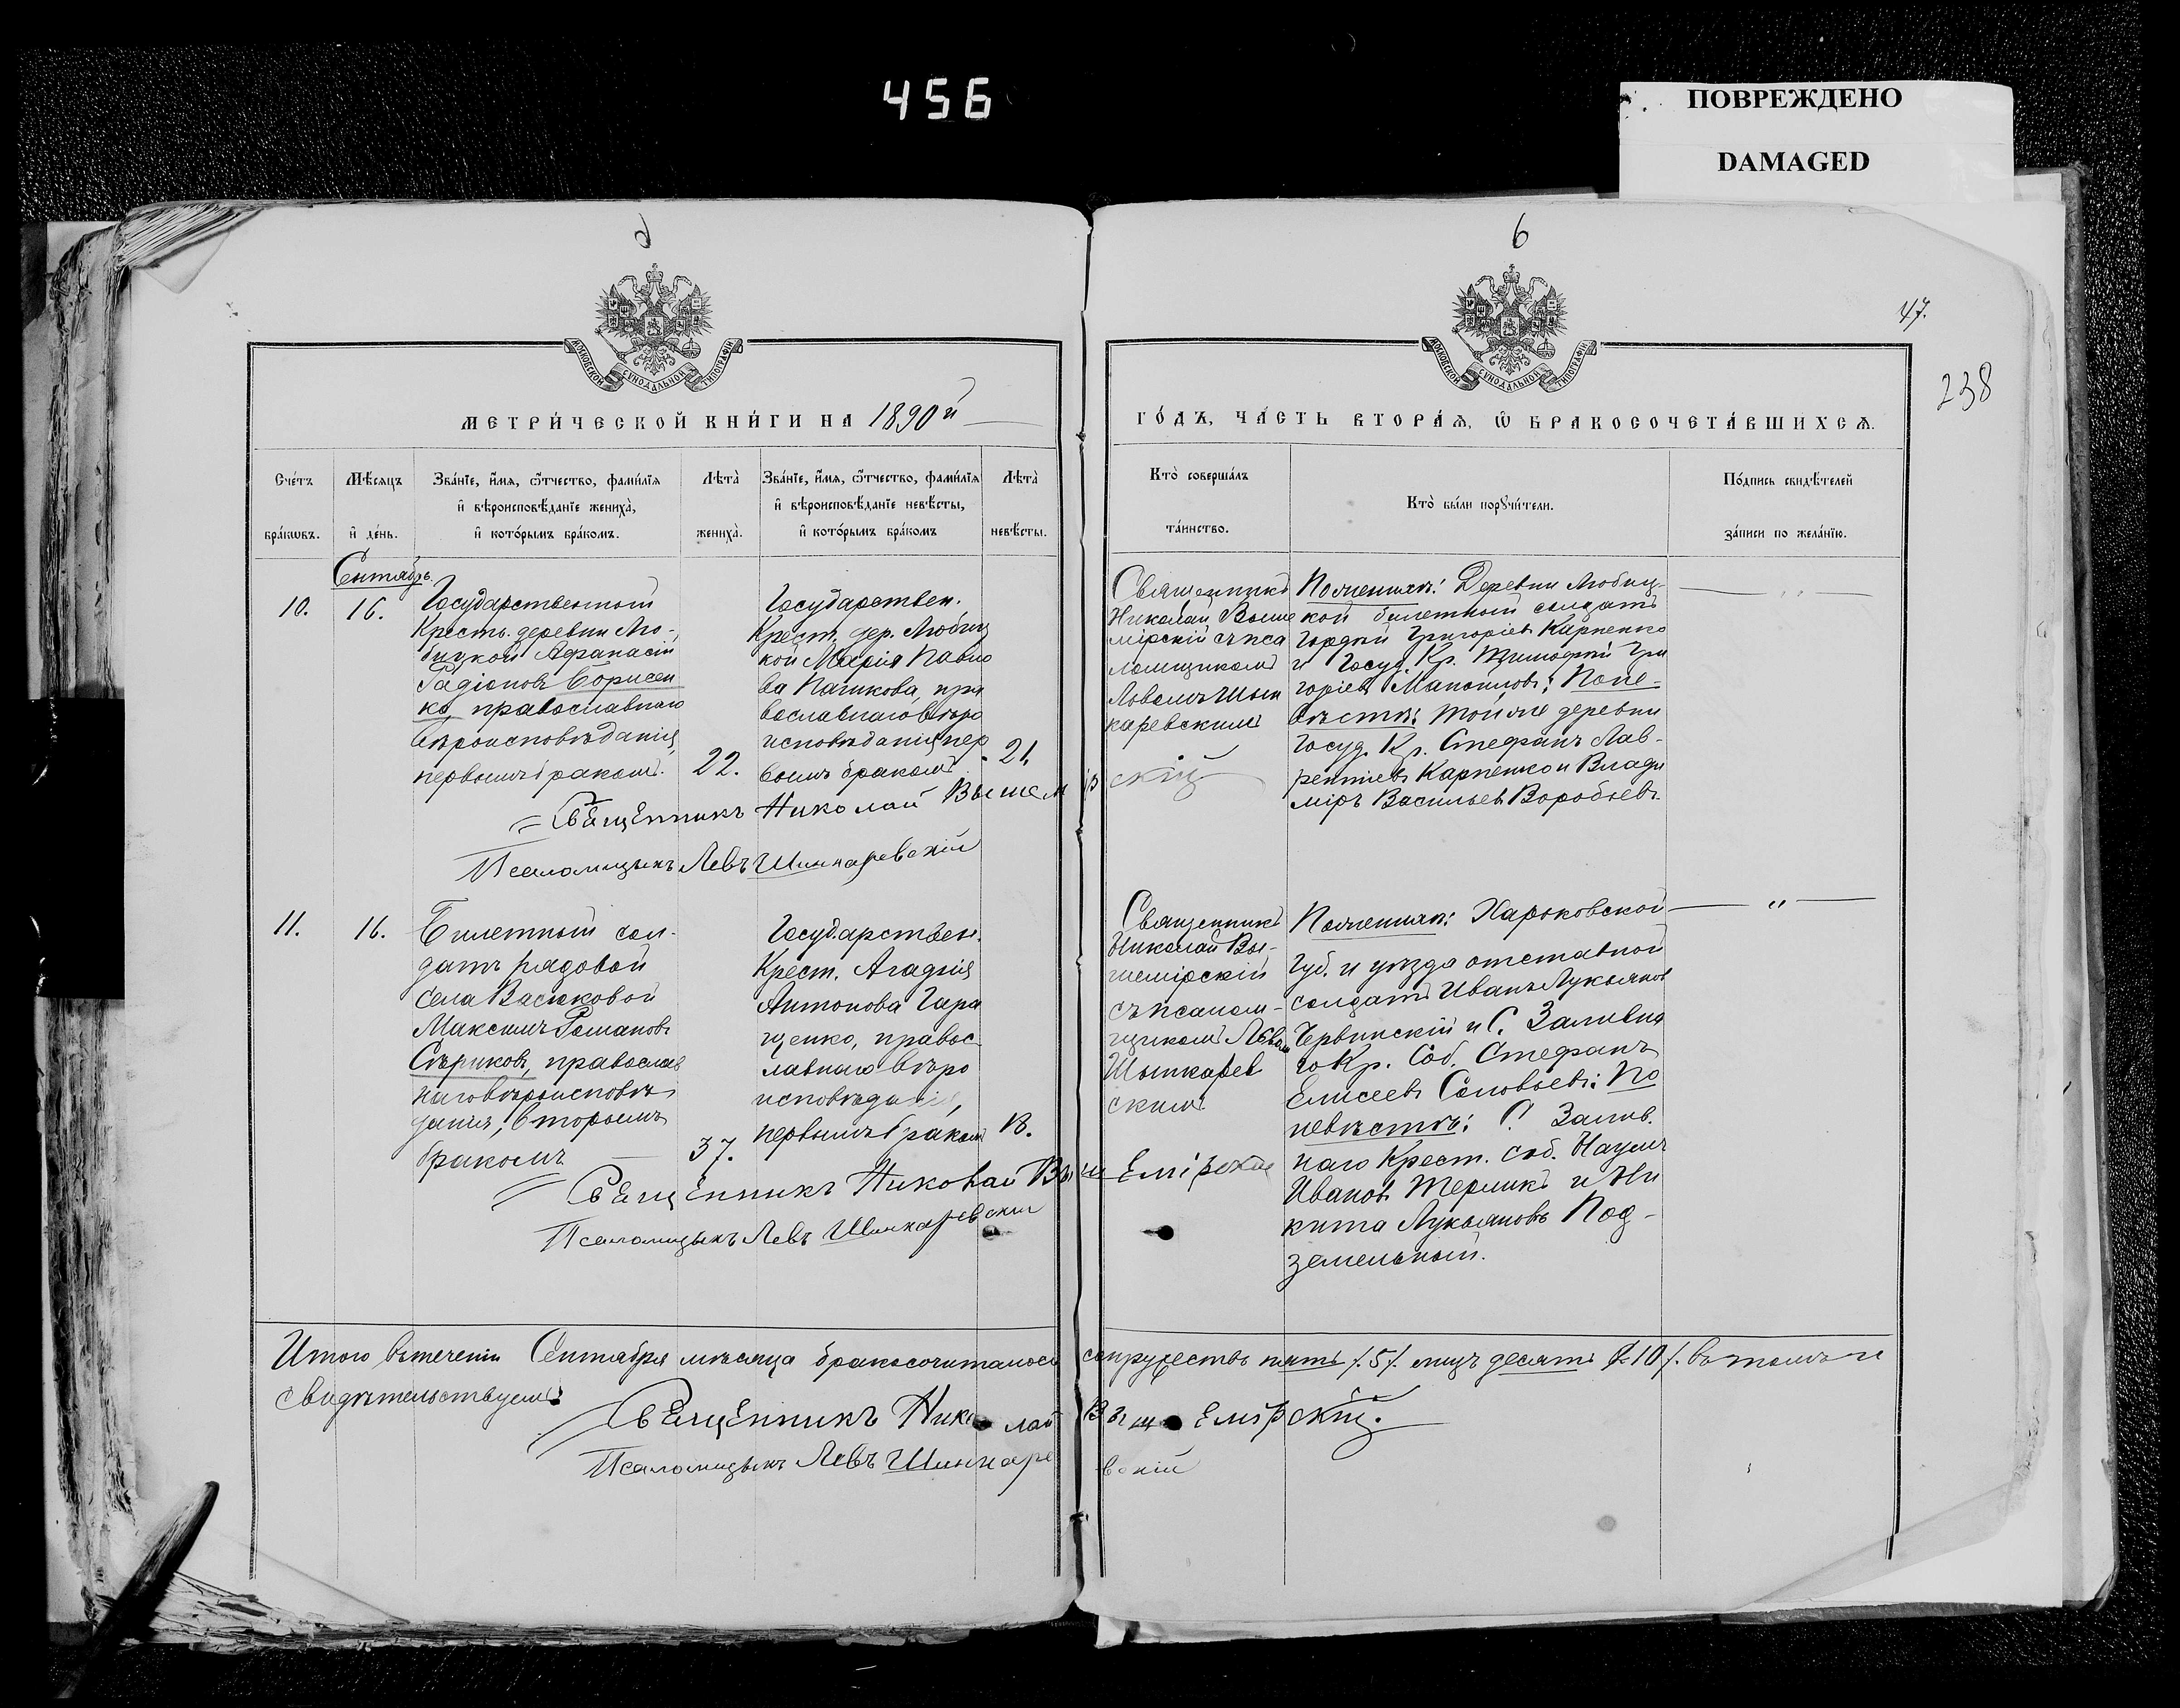 456
ПОВРЕЖДЕНО
DAMAGED
6
6
47.
238
МОСКОВСКОЙ СѴНОДАЛЬНОЙ ТИПОГРАФІИ
МОСКОВСКОЙ СѴНОДАЛЬНОЙ ТИПОГРАФІИ
МЕТРИ́ЧЕСКОЙ КНИ́ГИ НА 1890й
ГО́ДЪ, ЧА́СТЬ ВТОРА́Ѧ, Ѽ БРАКОСОЧЕТА́ВШИХСѦ.
Сче́тъ
бра́кѡвъ.
Мѣ́сѧцъ
и҆ де́нь.
Зва́нїе, и҆́мѧ, ѻ҆́тчество, фами́лїѧ
и҆ вѣроисповѣ́данїе жениха̀,
и҆ кото́рымъ бра́комъ.
Лѣта̀
жениха̀.
Зва́нїе, и҆́мѧ, ѻ҆́тчество, фами́лїѧ
и҆ вѣроисповѣ́данїе невѣ́сты,
и҆ кото́рымъ бра́комъ
Лѣта̀
невѣ́сты.
Кто̀ соверша́лъ
та́инство.
Кто̀ бы́ли порꙋчи́тели.
По́дпись свидѣ́телей
за́писи по жела́нїю.
Сентябрь.
10.
16.
Государственный
Крестъ. деревни Лю-
бицкой Афанасій
Радіоновъ Борисен
ко, православнаго
вѣроисповѣданія,
первымъ бракомъ.
22.
Государствен.
Крест. дер. Любиц
кой Марія Павло
ва Пашкова, пра
вославнаго вѣро
исповѣданія, пер
вымъ бракомъ
21.
Священникъ
Николай Выше
мірскій съ пса
ломщикомъ
Львомъ Шин
каревскимъ
По женихѣ: Деревни Любиц-
кой билетный солдатъ
Гордѣй Григоріевъ Карпенко
и Госуд. Кр. Тимофѣй Гри
горіевъ Манойловъ; По не-
вѣстѣ: той же деревни
Госуд. Кр. Стефанъ Лав-
рентіевъ Карпенко и Влади
міръ Васильевъ Воробьевъ.
Священникъ Николай Вышемірскій
Псаломщикъ Левъ Шинкаревскій
11.
16.
Билетный сол-
датъ рядовой
села Васюковой
Максимъ Романовъ
Сѣриковъ, православ
наго вѣроисповѣ
данія, вторымъ
бракомъ
37.
Государствен.
Крест. Агафія
Антонова Гара
щенко, правос
лавнаго вѣро
исповѣданія,
первымъ бракомъ
18.
Священникъ
Николай Вы-
шемірскій
съ псалом-
щикомъ Львомъ
Шинкарев
скимъ
По женихѣ: Харьковской
губ. и уѣзда отставной
солдатъ Иванъ Лукьяновъ
Червинскій и С. Заливна
го Кр. Соб. Стефанъ
Елисеевъ Соловьевъ; По
невѣстѣ: С. Залив.
наго Крест. соб. Наумъ
Ивановъ Терликъ и Ни
кита Лукьяновъ Под-
земельный.
Священникъ Николай Вышемірскій
Псаломщикъ Левъ Шинкаревскій
Итого въ теченіи Сентября мѣсяца бракосочиталось супружествъ пять /.5/. лицъ десять /.10/. въ томъ и
свидѣтельствуемъ:
Священникъ Николай Вышемірскій.
Псаломщикъ Левъ Шинкаревскій